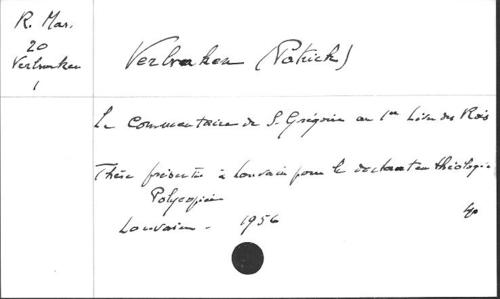 R. Mar.
20
Verbraken
1
Verbraken (Patrick)
Le Commentaire de S. Grégoire au 1er Livre des Rois
Thèse présentée à Louvain pour le doctorat en théologie
Polycopiée
Louvain - 1956
4°